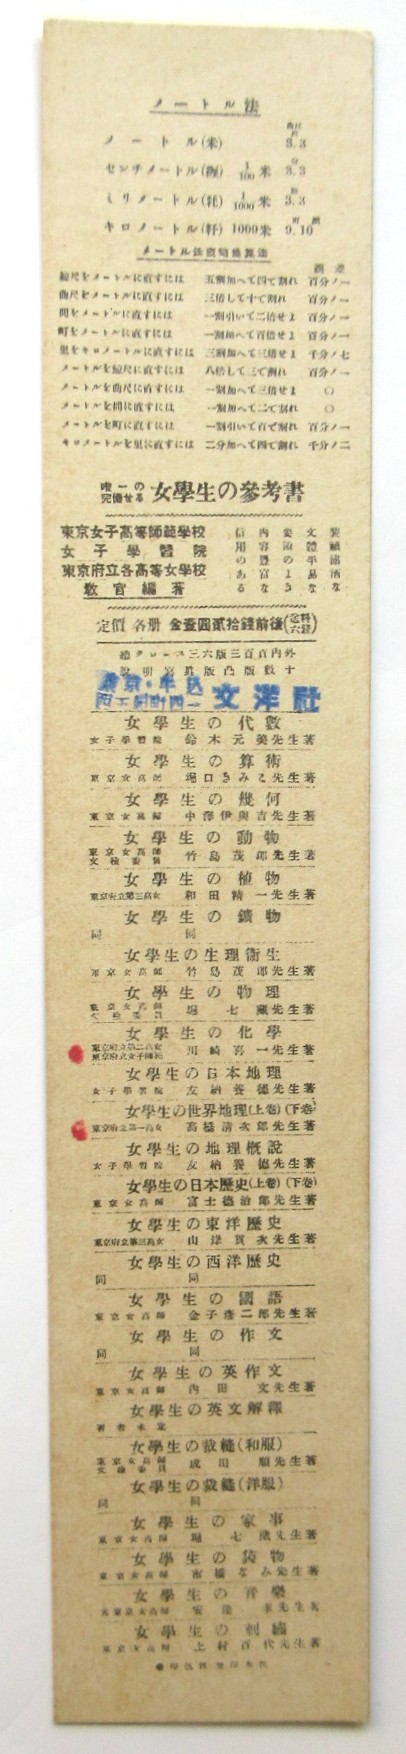 メートル法
メートル(米) 3.3
センチメートル(糎) 1/100米 3.3
ミリメートル(粍) 1/1000米 3.3
キロメートル(粁) 1000米 9.10
メートル法 換算法
鯨尺をメートルに直すには 五割加へて四で割れ 百分ノ一
曲尺をメートルに直すには 三倍して十で割れ 百分ノ一
間をメートルに直すには 一割引いて二倍せよ 百分ノ一
町をメートルに直すには 一割加へて百倍せよ 百分ノ一
里をキロメートルに直すには 三割加へて三倍せよ 千分ノ七
メートルを鯨尺に直すには 八倍して三で割れ 百分ノ一
メートルを曲尺に直すには 一割加へて三倍せよ 〇
メートルを間に直すには 一割加へて二で割れ 〇
メートルを町に直すには 一割引いて百で割れ 百分ノ一
キロメートルを里に直すには 二分加へて四で割れ 千分ノ二
唯一の完備せる 女學生の參考書
東京女子高等師範學校
女子學習院
東京府立各高等女學校
教官編著
定價 各册 金壹圓貳拾錢前後
總クロース三六版三百頁内外
說明寫眞版凸版數十
東京・牛込
文洋社
女學生の代數
女子學習院 鈴木元美先生著
女學生の算術
東京女高師 堀口きみこ先生著
女學生の幾何
東京女高師 中澤伊與吉先生著
女學生の動物
東京女高師 文檢委員 竹島茂郎先生著
女學生の植物
東京府立第三高女 和田精一先生著
女學生の鑛物
同 同
女學生の生理衞生
東京女高師 竹島茂郎先生著
女學生の物理
東京女高師 文檢委員 堀七藏先生著
女學生の化學
東京府立第二高女 東京府立女子師範 川崎喜一先生著
女學生の日本地理
女子學習院 友納養德先生著
女學生の世界地理(上卷)(下卷)
東京府立第一高女 高橋清次郎先生著
女學生の地理概說
女子學習院 友納養德先生著
女學生の日本歷史(上卷)(下卷)
東京女高師 富士德治郎先生著
女學生の東洋歷史
東京府立第三高女 山崎貫次先生著
女學生の西洋歷史
同 同
女學生の國語
東京女高師 金子彥二郎先生著
女學生の作文
同 同
女學生の英作文
東京女高師 内田 文先生著
女學生の英文解釋
著者未定
女學生の裁縫(和服)
東京女高師 文檢委員 成田 順先生著
女學生の裁縫(洋服)
同 同
女學生の家事
東京女高師 堀七藏先生著
女學生の袋物
東京女高師 市橋なみ先生著
女學生の音樂
元東京女高師 安達 孝先生著
女學生の刺繡
東京女高師 上村百代先生著